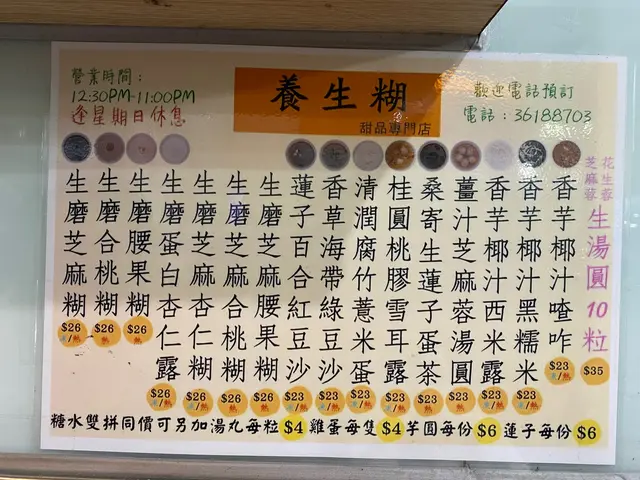 營業時間：
12:30PM-11:00PM
逢星期日休息
養生糊
甜品專門店
歡迎電話預訂
電話：36188703
生磨芝麻糊
$26
/熱
生磨合桃糊
$26
熱
生磨腰果糊
$26
熱
生磨蛋白杏仁露
$26
/熱
生磨芝麻杏仁糊
$26
熱
生磨芝麻合桃糊
$26
熱
生磨芝麻腰果糊
$26
熱
蓮子百合紅豆沙
$23
/熱
香草海帶綠豆沙
$23
/熱
清潤腐竹薏米蛋
$23
/熱
桂圓桃膠雪耳露
$23
/熱
桑寄生蓮子蛋茶
$23
熱
薑汁芝麻蓉湯圓
$23
熱
香芋椰汁西米露
$23
/熱
香芋椰汁黑糯米
$23
/熱
香芋椰汁喳咋
$23
/熱
花生蓉
芝麻蓉
生湯圓10粒
$35
糖水雙拼同價可另加湯丸每粒 $4 雞蛋每隻 $4 芋圓每份 $6 蓮子每份 $6